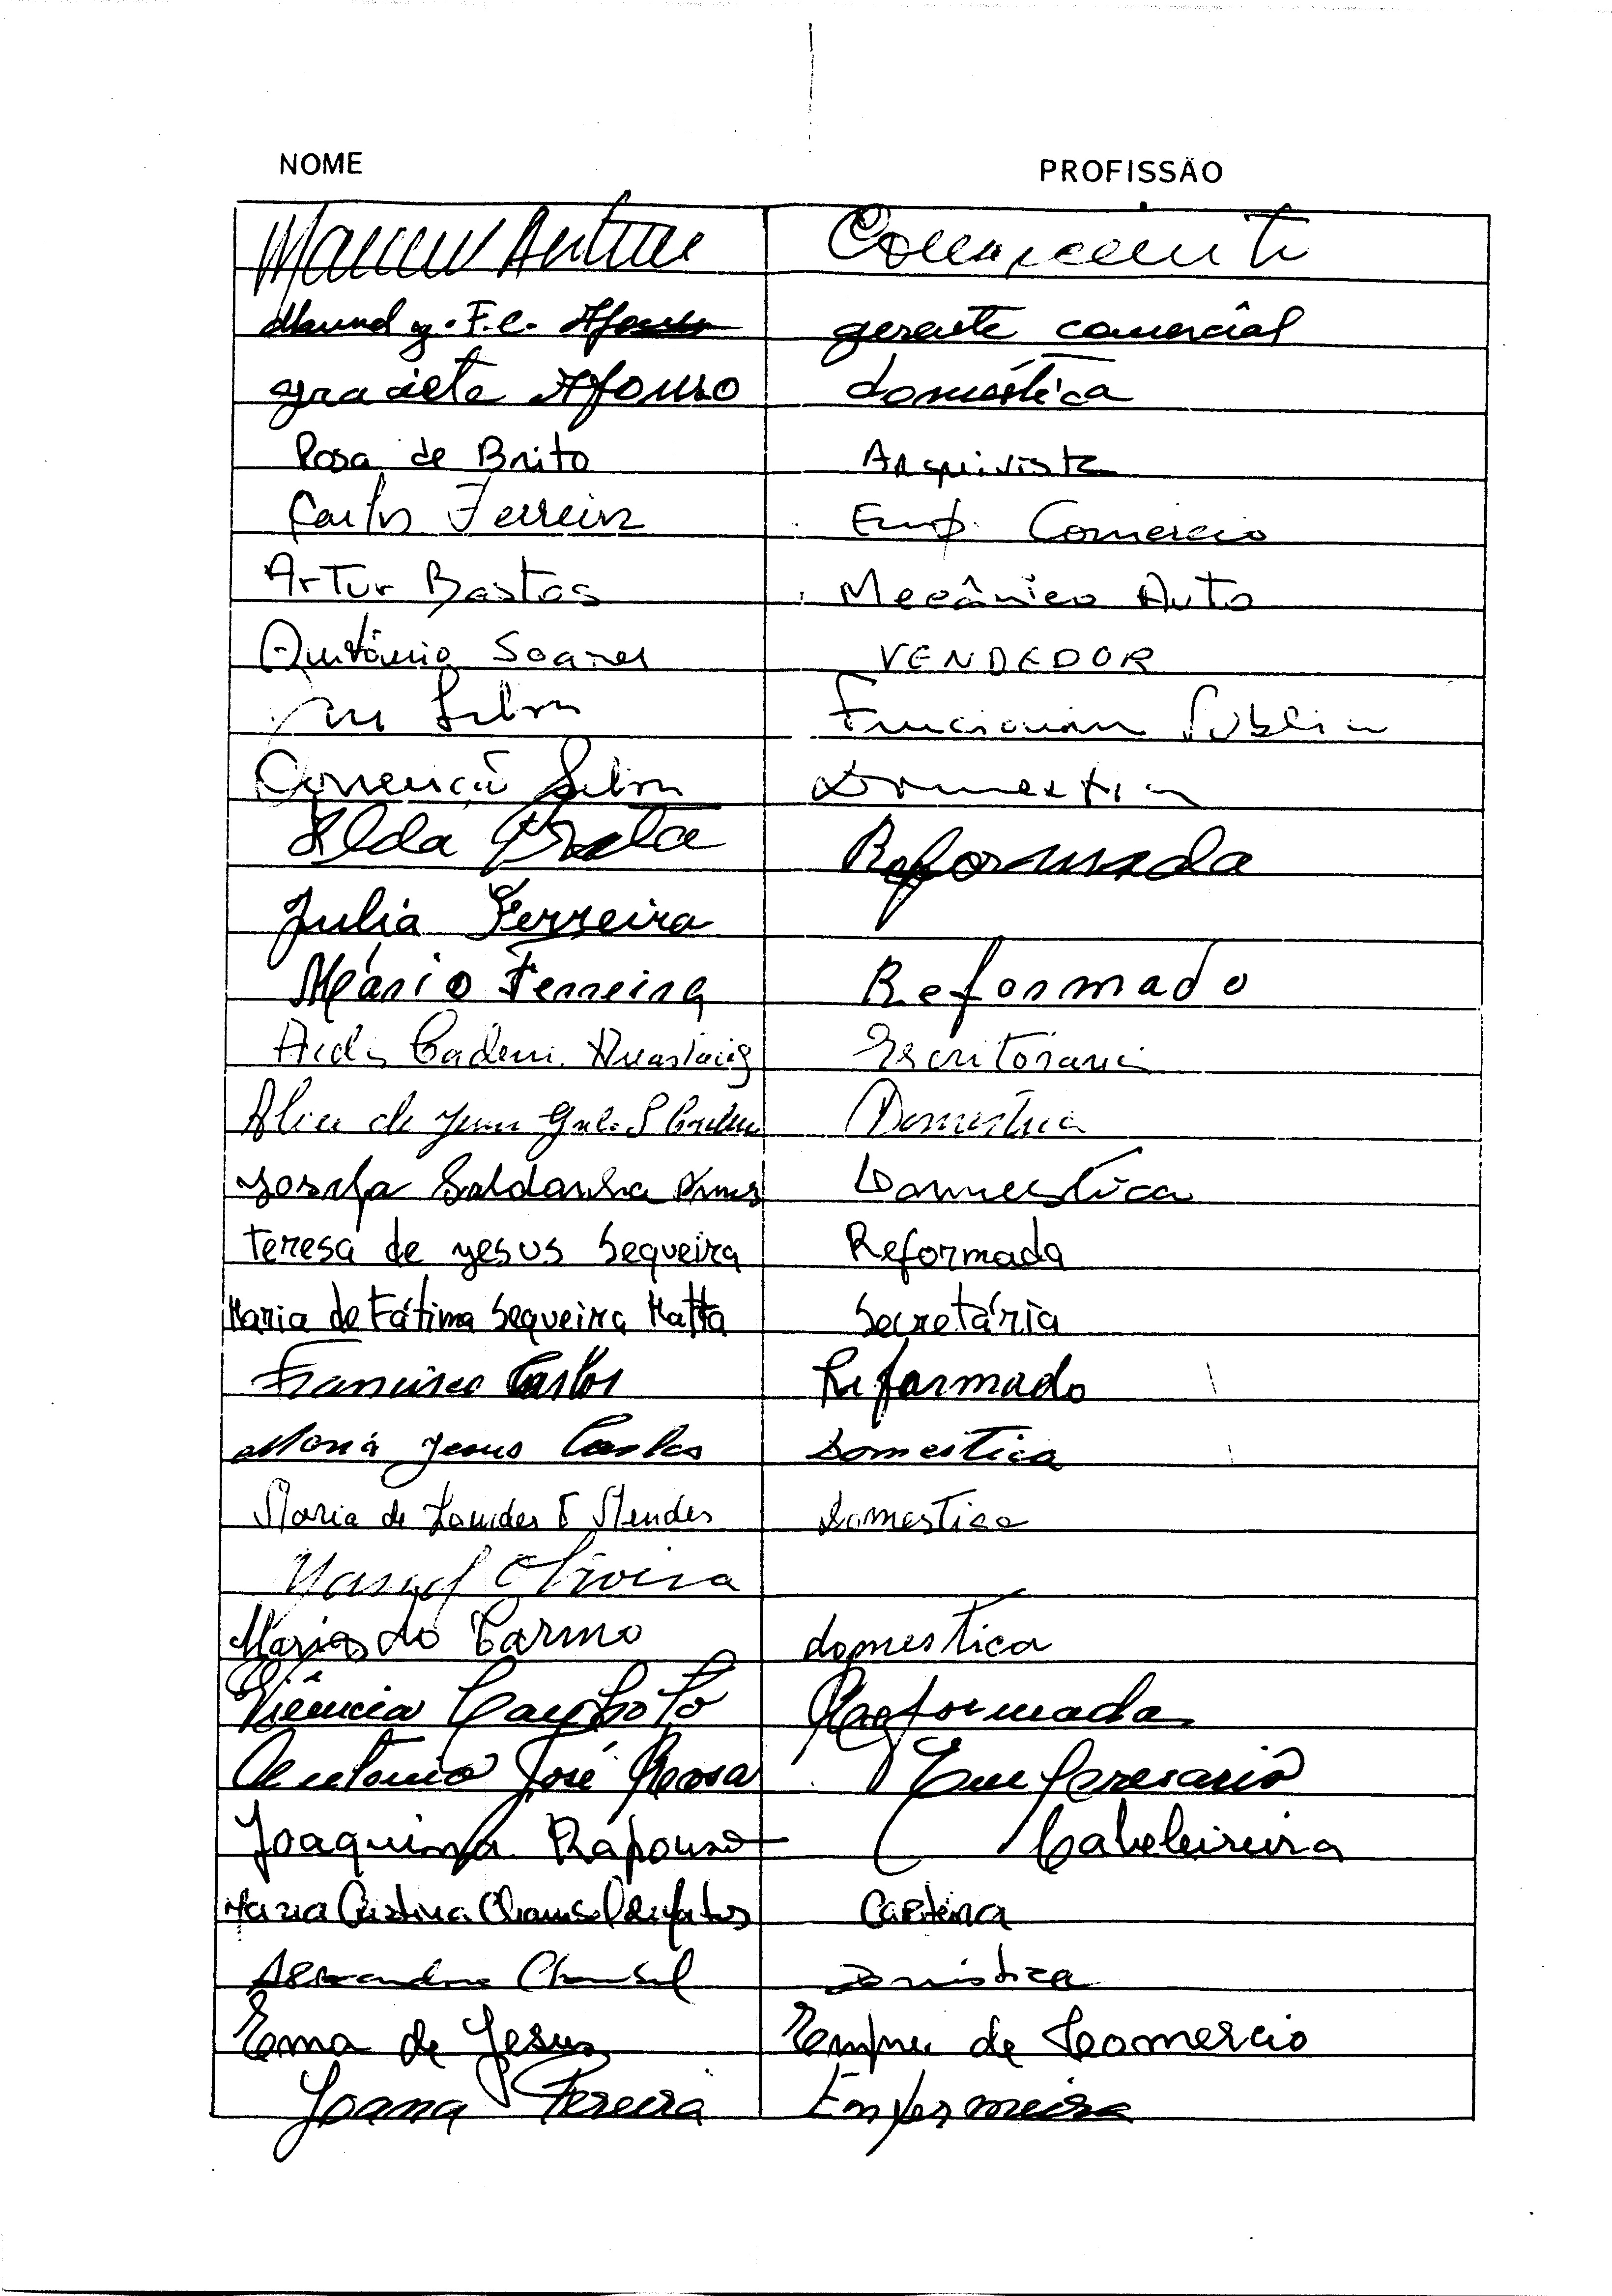 NOME PROFISSÃO
Antunes Comerciante
Manuel J. F. C. Afonso gerente comercial
Graciete Afonso doméstica
Rosa de Brito Arquivista
Carlos Ferreira Emp. Comercio
Artur Bastos Mecânico Auto
António Soares VENDEDOR
Silva Funcionário Público
Conceição Silva Domestica
Alda Prata Reformada
Julia Ferreira
Mário Ferreira Reformado
Escriturária
Alice de Domestica
Josefa Saldanha Domestica
Teresa de Jesus Sequeira Reformada
Maria de Fátima Sequeira Matta Secretária
Francisco Carlos Reformado
Maria Jesus Domestica
Maria de Lourdes Mendes Domestica
Manuel Oliveira
Maria do Carmo domestica
Reformada
António José Rosa Empresario
Joaquina Raposo Cabeleireira
Maria Cristina Carteira
Doméstica
Ema de Jesus de Comercio
Joana Pereira Enfermeira